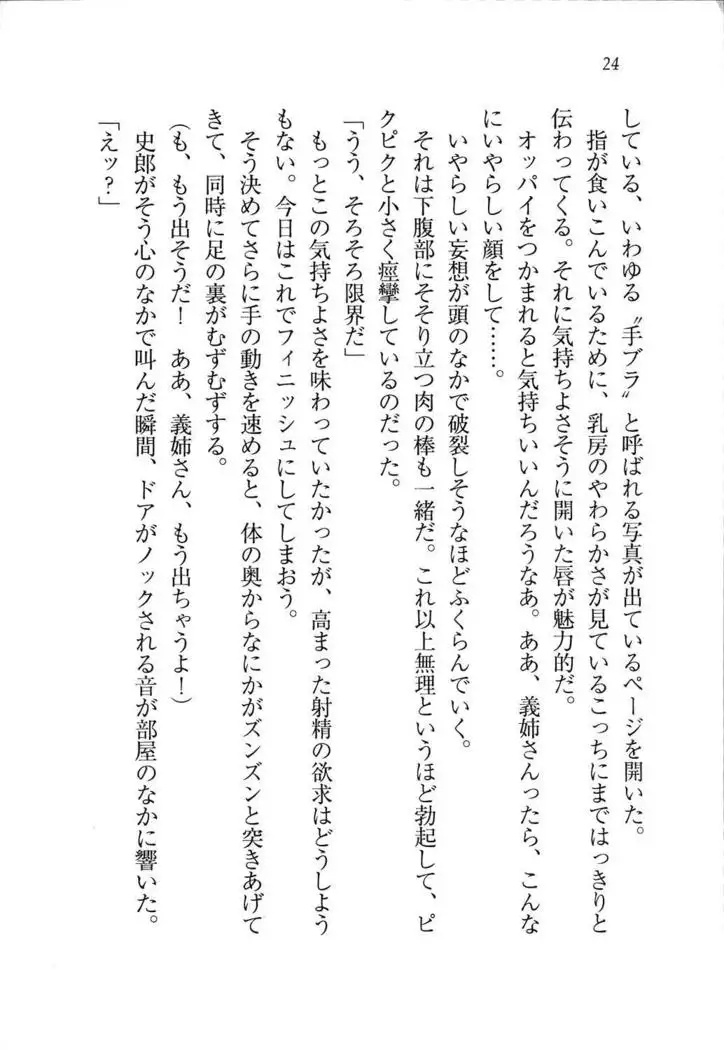 24
している、いわゆる〝手ブラ〟と呼ばれる写真が出ているページを開いた。
指が食いこんでいるために、乳房のやわらかさが見ているこっちにまではっきりと
伝わってくる。それに気持ちよさそうに開いた唇が魅力的だ。
オッパイをつかまれると気持ちいいんだろうなあ。ああ、義姉さんったら、こんな
にいやらしい顔をして……。
いやらしい妄想が頭のなかで破裂しそうなほどふくらんでいく。
それは下腹部にそそり立つ肉の棒も一緒だ。これ以上無理というほど勃起して、ピ
クピクと小さく痙攣しているのだった。
「うう、そろそろ限界だ」
もっとこの気持ちよさを味わっていたかったが、高まった射精の欲求はどうしよう
もない。今日はこれでフィニッシュにしてしまおう。
そう決めてさらに手の動きを速めると、体の奥からなにかがズンズンと突きあげて
きて、同時に足の裏がむずむずする。
(も、もう出そうだ! ああ、義姉さん、もう出ちゃうよ!)
史郎がそう心のなかで叫んだ瞬間、ドアがノックされる音が部屋のなかに響いた。
「えッ?」